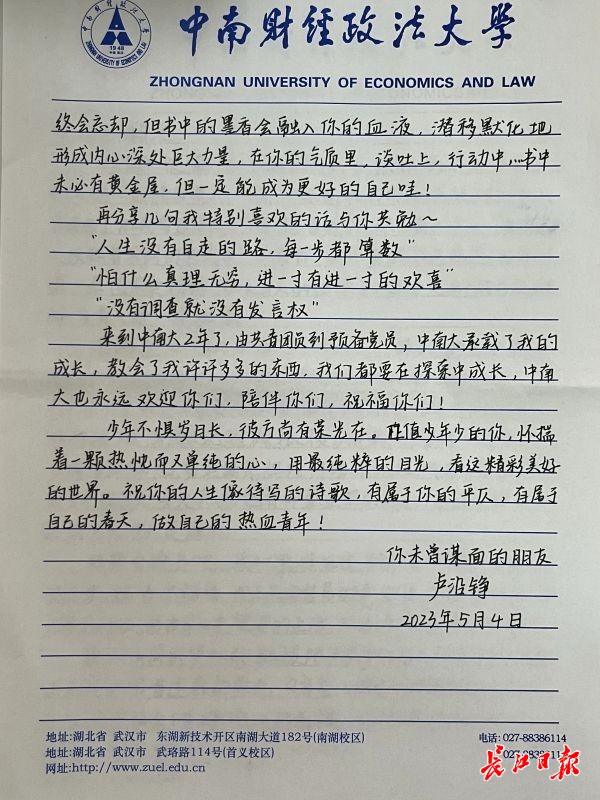 中南财经政法大学
ZHONGNAN UNIVERSITY OF ECONOMICS AND LAW
终会忘却，但书中的墨香会融入你的血液，潜移默化地
形成内心深处巨大力量，在你的气质里，谈吐上，行动中，书中
未必有黄金屋，但一定能成为更好的自己哇！
再分享几句我特别喜欢的话与你共勉~
“人生没有白走的路，每一步都算数”
“怕什么真理无穷，进一寸有进一寸的欢喜”
“没有调查就没有发言权”
来到中南大2年了，由共青团员到预备党员，中南大承载了我的
成长，教会了我许许多多的东西，我们都要在探索中成长，中南
大也永远欢迎你们，陪伴你们，祝福你们！
少年不惧岁月长，彼方尚有荣光在。正值少年少的你，怀揣
着一颗热忱而又单纯的心，用最纯粹的目光，看这精彩美好
的世界。祝你的人生像待写的诗歌，有属于你的平仄，有属于
自己的春天，做自己的热血青年！
你未曾谋面的朋友
卢沿铮
2023年5月4日
地址:湖北省 武汉市 东湖新技术开发区南湖大道182号(南湖校区) 电话:027-88386114
地址:湖北省 武汉市 武珞路114号(首义校区) 027-88386114
网址:http://www.zuel.edu.cn
长江日报